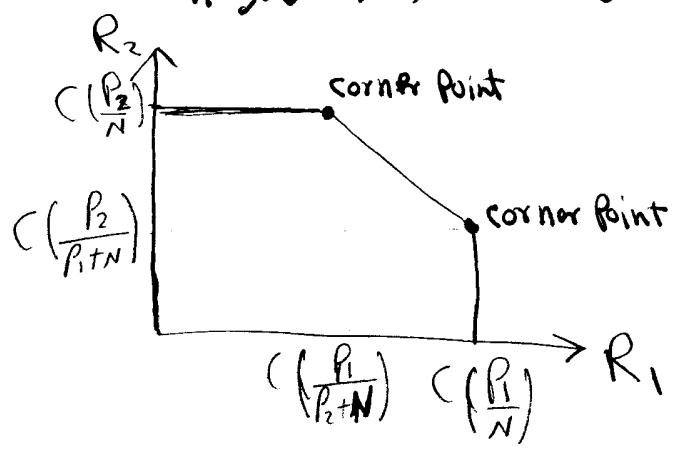 R₂
C(P₂/N)
corner point
C(P₂/(P₁+N))
corner point
C(P₁/(P₂+N))
C(P₁/N)
R₁